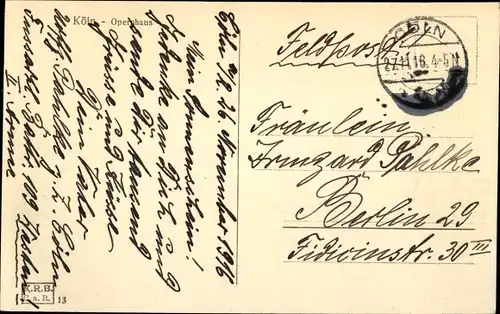 Köln - Opernhaus
Cöln a/R. 26. November 1916
Mein Sonnenschein!
Gedenke an Dich und
sende Dir tausend
Grüsse und Küsse
Dein Vater
Dahlke z. Z. Cöln
II. Armee
K.R.B.
a. R.
13
Feldpost
CÖLN
27.11.16. 4-5N
Fräulein
Irmgard Dahlke
Berlin 29
Fidicinstr. 30 III